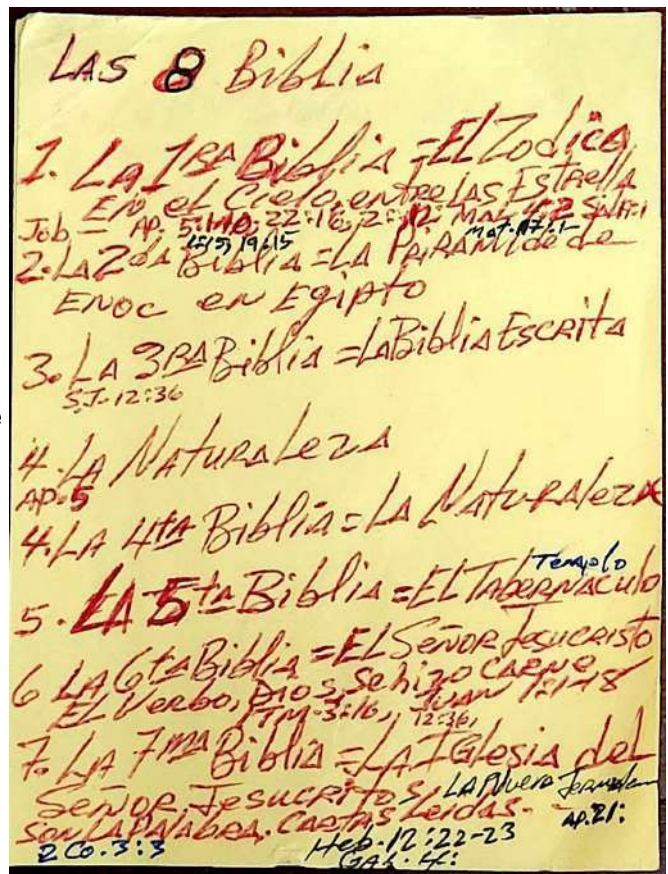 LAS 8 Biblia
1. La 1RA Biblia = EL Zodica
EN el Cielo, entre LAS EStRella
Job - AP. 5:1-10, 22:16, 2:
19:15 Mat. 17:1-
2. LA 2da Biblia = LA PiRAMide de
ENOC en Egipto
3. LA 3RA Biblia = LA Biblia EscRita
S.J-12:36
4. LA NAtuRaLeza
AP.5
4. LA 4ta Biblia = LA NatuRaleza
Templo
5. LA 5ta Biblia = EL TABERNACulo
6 LA 6ta Biblia = EL SEÑOR JesucRisto
EL Verbo, DiOS, Se hizo CARNE
1TM-3:16, JUAN 1:1-18
12:36,
7. LA 7MA Biblia = LA IGlesia del
SEÑOR JESUCRITOS, LA NUeva JeRusalen
SON LA PALAbRA. CARTAS Leidas. AP.21:
2 Co. 3:3 Heb. 12:22-23
GAL. 4: